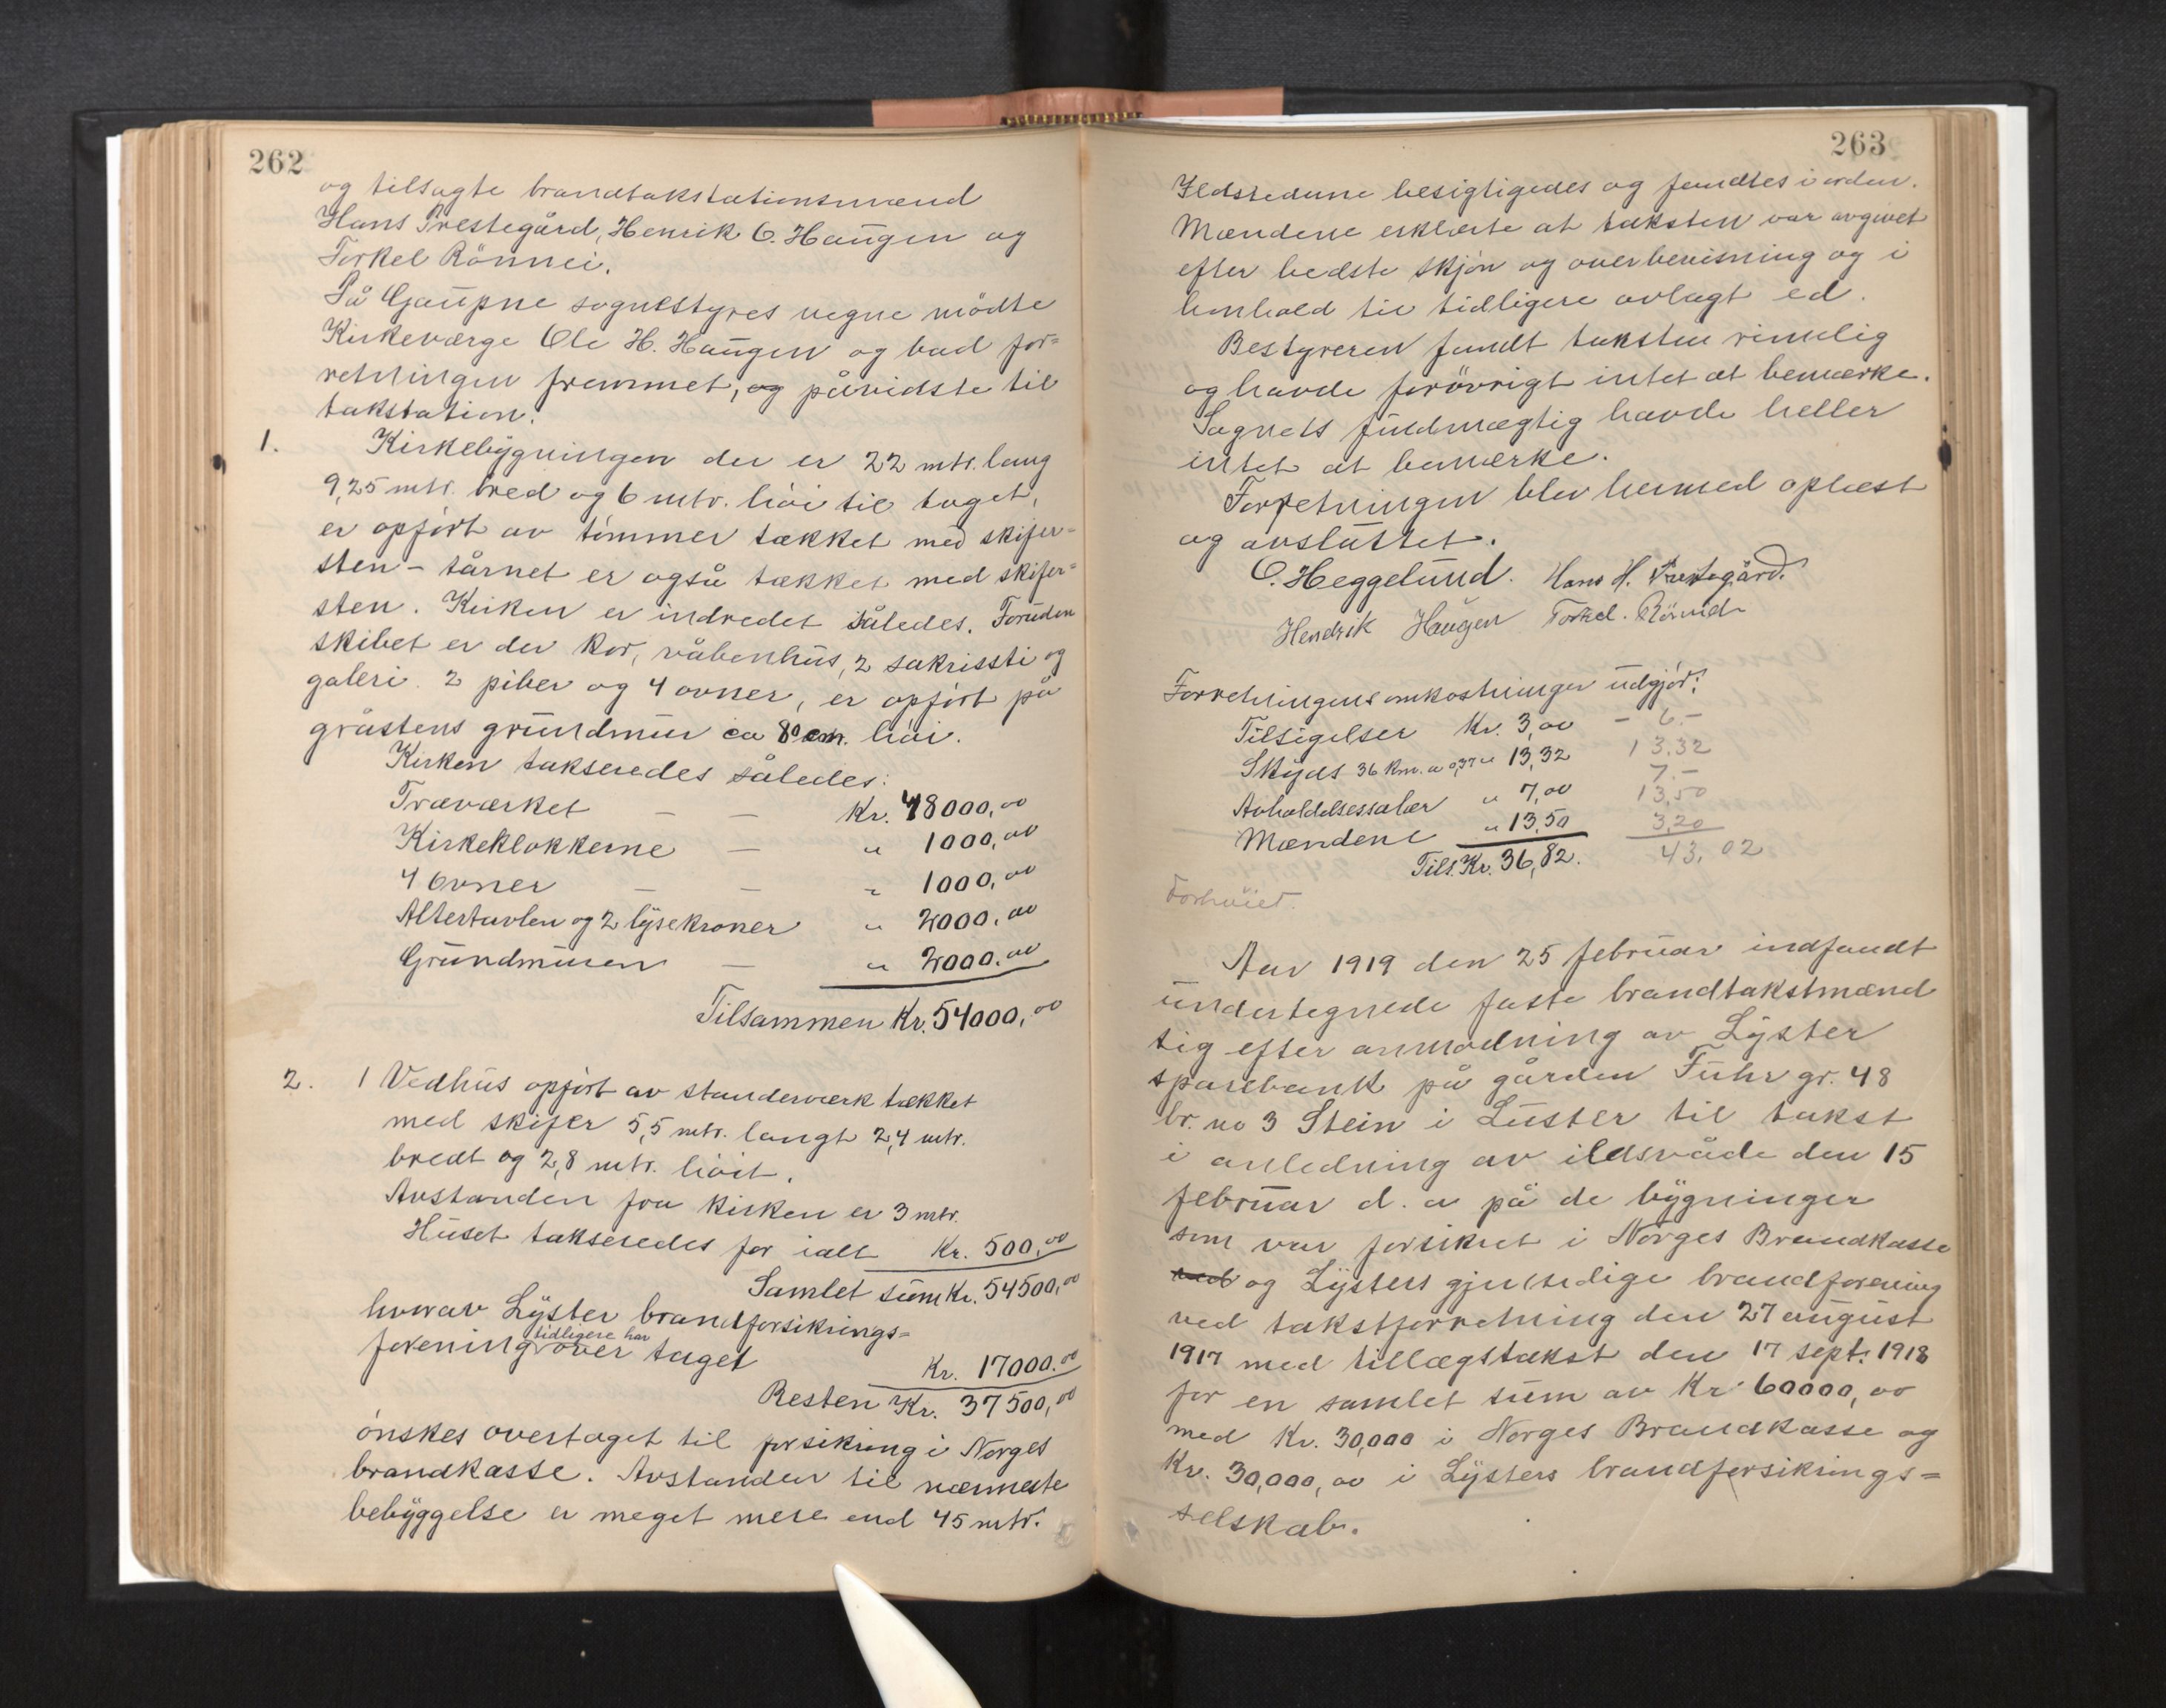 262
og tilsagte brandtakstationsmænd
Hans Prestegård, Henrik O. Haugen og
Torkel Rönnei.
På Gaupne sognestyres vegne mödte
Kirkeværge Ole H. Haugen og bad for=
retningen fremmet, og påvidste til
takstation:
1. Kirkebygningen der er 22 mtr. lang
9,25 mtr. bred og 6 mtr. höi til taget,
er opfört av tömmer tækket med skifer=
sten – tårnet er også tækket med skifer=
sten. Kirken er indredet således. Foruden
skibet er der kor, våbenhus, 2 sakristi og
galeri. 2 piber og 4 ovner, er opfört på
gråstens grundmur ca 80 cm. höi.
Kirken takseredes således:
Træværket — — Kr. 48000,00
Kirkeklokkerne — " 1000,00
4 Ovner — — " 1000,00
Altertavlen og 2 lysekroner " 2000,00
Grundmuren — " 2000,00
Tilsammen Kr. 54000,00
2. 1 Vedhus opfört av standerværk tækket
med skifer 5,5 mtr. langt 2,4 mtr.
bredt og 2,8 mtr. höit.
Avstanden fra kirken er 3 mtr.
Huset takseredes for ialt Kr. 500,00
Samlet sum Kr. 54500,00
hvorav Lyster brandforsikrings=
forening tidligere har over taget Kr. 17000.00
Resten Kr. 37500,00
önskes overtaget til forsikring i Norges
brandkasse. Avstanden til nærmeste
bebyggelse er meget mere end 45 mtr.
263
Ildstedene besigtigedes og fandtes i orden.
Mændene erklærte at taksten var avgivet
efter bedste skjön og overbevisning og i
henhold til tidligere avlagt ed.
Bestyreren fandt taksten rimelig
og havde forövrigt intet at bemærke.
Sognets fuldmægtig havde heller
intet at bemærke.
Forretningen blev hermed oplæst
og avsluttet.
O. Heggelund. Hans H. Prestegård.
Hendrik Haugen Torkel. Rönnei
Forretningens omkostninger udgjör:
Tilsigelser Kr. 3,00 – 6.–
Skyds 36 km. a 0,37 " 13,32 13.32
Avholdelsessalær " 7,00 7.–
Mændene " 13,50 13,50
3,20
Tils. Kr. 36,82. 43,02
Forhöiet.
Aar 1919 den 25 februar indfandt
undertegnede faste brandtakstmænd
sig efter anmodning av Lyster
sparebank på gården Fuhr gr. 48
br. no 3 Stein i Luster til takst
i anledning av ildsvåde den 15
februar d. a på de bygninger
som var forsikret i Norges Brandkasse
ved og Lysters gjensidige brandforening
ved takstforretning den 27 august
1917 med tillægstakst den 17 sept. 1918
for en samlet sum av Kr 60000,00
med Kr. 30,000 i Norges Brandkasse og
Kr. 30,000,00 i Lysters brandforsikrings=
selskab.